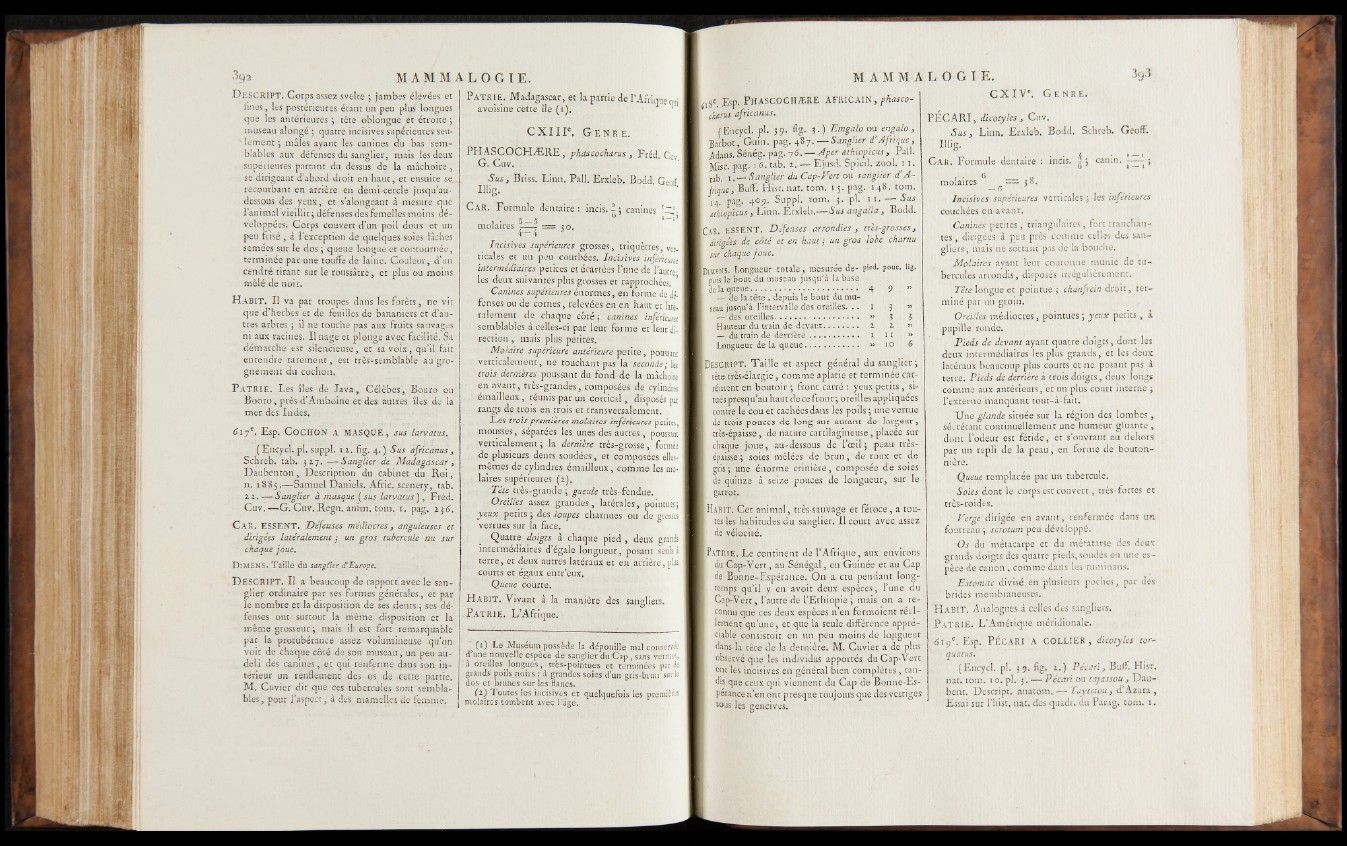 392 MAMMALOGIE.
DESCRIPT. Corps assez svelte ; jambes élevées et
fines, les postérieures étant un peu plus longues
que les antérieures ; tête oblongue et étroite ;
museau alongé ; quatre incisives supérieures seu-
lement ; mâles ayant les canines du bas sem-
blables aux défenses du sanglier, mais les deux
supérieures partant du dessus de la mâchoire,
se dirigeant d'abord droit en haut, et ensuite se
recourbant en arrière en demi-cercle jusqu'au-
dessous des yeux, et s'alongeant à mesure que
l'animal vieillit ; défenses des femelles moins dé-
veloppées. Corps couvert d'un poil doux et un
peu frisé, à l'exception de quelques soies lâches
semées sur le dos ; queue longue et contournée,
terminée par une touffe de laine. Couleur, d'un
cendré tirant sur le roussâtre, et plus ou moins
mêlé de noir.
HABIT. Il va par troupes dans les forêts, ne vit
que d'herbes et de feuilles de bananiers et d'au-
tres arbres ; il ne touche pas aux fruits sauvages
ni aux racines. Il nage et plonge avec facilité. Sa
démarche est silencieuse, et sa voix, qu'il fait
entendre rarement, est très-semblable au gro-
gnement du cochon.
PATRIE. Les îles de Java, Célèbes, Bouro ou
Booro, près d'Amboine et des autres îles de la
mer des Indes.
617e. Esp. COCHON A MASQUE, sus larvatus.
(Encycl. pl. suppl. 12. fig. 4.) Sus africanus,
Schreb. tab. 327. — Sanglier de Madagascar,
Daubenton, Description du cabinet du Roi,
n. 1885.—Samuel Daniels. Afric. scenery, tab.
22. — Sanglier à masque (sus larvatus), Fréd.
Cuv. —G. Cuv. Regn. anim. tom. 1. pag. 236.
CAR. ESSENT. Défenses médiocres, anguleuses et
dirigées latéralement ; un gros tubercule nu sur
chaque joue.
DIMENS. Taille du sanglier d'Europe.
DESCRIPT. Il a beaucoup de rapport avec le san-
glier ordinaire par ses formes générales, et par
le nombre et la disposition de ses dents ; ses dé-
fenses ont surtout la même disposition et la
même grosseur ; mais il est fort remarquable
par la protubérance assez volumineuse qu'on
voit de chaque côté de son museau, un peu au-
delà des canines, et qui renferme dans son in-
térieur un renflement des os de cette partie.
M. Cuvier dit que ces tubercules sont sembla-
bles, pour l'aspect, à des mamelles de femme.
PATRIE. Madagascar, et la partie de l'Afrique qui
avoisine cette île (1).
CXIIIe. GENRE.
PHASCOCHÆRE, phascochœrus, Fréd. Cuv.
G. Cuv.
Sus, Briss. Linn. Pall. Erxleb. Bodd. Geoff.
Illig.
CAR. Formule dentaire : incis. 2/6 ; canines 1—1/1—1
molaires 5—5/5—5 = 30.
Incisives supérieures grosses, triquètres, ver-
ticales et un peu courbées. Incisives inférieures
intermédiaires petites et écartées l'une de l'autre;
les deux suivantes plus grosses et rapprochées.
Canines supérieures énormes, en forme de dé-
fenses ou de cornes, relevées en en haut et laté-
ralement de chaque côté ; canines inférieures
semblables à celles-ci par leur forme et leur di-
rection, mais plus petites.
Molaire supérieure antérieure petite, poussant
verticalement, ne touchant pas la seconde ; les
trois dernières poussant du fond de la mâchoire
en avant, très-grandes, composées de cylindres
émailleux, réunis par un cortical, disposés par
rangs de trois en trois et transversalement.
Les trois premières molaires inférieures petites,
mousses, séparées les unes des autres, poussant
verticalement ; la dernière très-grosse, formée
de plusieurs dents soudées, et composées elles-
mêmes de cylindres émailleux, comme les mo-
laires supérieures (2).
Tête très-grande ; gueule très-fendue.
Oreilles assez grandes, latérales, pointues ;
yeux petits ; des loupes charnues ou de grosses
verrues sur la face.
Quatre doigts à chaque pied, deux grands
intermédiaires d'égale longueur, posant seuls à
terre, et deux autres latéraux et en arrière, plus
courts et égaux entr'eux.
Queue courte.
HABIT. Vivant à la manière des sangliers.
PATRIE. L'Afrique.
(1) Le Muséum possède la dépouille mal conservée
d'une nouvelle espèce de sanglier du Cap, sans verrues,
à oreilles longues, très-pointues et terminées par de
grands poils noirs : à grandes soies d'un gris-brun sur le
dos et brunes sur les flancs.
(2) Toutes les incisives et quelquefois les premières
molaires tombent avec l'âge.
MAMMALOGIE. 393
618e. Esp. PHASCOCHÆRE AFRICAIN, phasco-
chœrus africanus.
(Encycl. pl. 39. fig. 3.) Emgalo ou engalo,
Barbot, Guin. pag. 487. — Sanglier d'Afrique,
Adans. Sénég. pag. 76. — Aper æthiopicus, Pall.
Misc. pag. 16. tab. 2. — Ejusd. Spicil. zool. 11.
tab. 1. — Sanglier du Cap-Vert ou sanglier d'A-
frique, Buff. Hist. nat. tom. 15. pag. 148. tom.
14. pag. 409. Suppl. tom. 3. pl. 11. — Sus
æthiopicus, Linn. Erxleb.—Sus angalla, Bodd.
CAR. ESSENT. Défenses arrondies, très-grosses,
dirigées de côté et en haut ; un gros lobe charnu
sur chaque joue.
DIMENS. Longueur totale, mesurée de- pied. pouc. lig.
puis le bout du museau jusqu'à la base
de la queue.................... 4 9 »
— de la tête, depuis le bout du mu-
seau jusqu'à l'intervalle des oreilles... 1 3 »
— des oreilles................. » 3 3
Hauteur du train de devant........ 2 2 »
— du train de derrière ........... 1 11 »
Longueur de la queue............ » 10 6
DESCRIPT. Taille et aspect général du sanglier ;
tête très-élargie, comme aplatie et terminée car-
rément en boutoir ; front carré : yeux petits, si-
tués presqu'au haut de ce front ; oreilles appliquées
contre le cou et cachées dans les poils ; une verrue
de trois pouces de long sur autant de largeur,
très-épaisse, de nature cartilagineuse, placée sur
chaque joue, au-dessous de l'œil ; peau très-
épaisse ; soies mêlées de brun, de roux et de
gris ; une énorme crinière, composée de soies
de quinze à seize pouces de longueur, sur le
garrot.
HABIT. Cet animal, très-sauvage et féroce, a tou-
tes les habitudes du sanglier. Il court avec assez
de vélocité.
PATRIE. Le continent de l'Afrique, aux environs
du Cap-Vert, au Sénégal, en Guinée et au Cap
de Bonne-Espérance. On a cru pendant long-
temps qu'il y en avoit deux espèces, l'une du
Cap-Vert, l'autre de l'Ethiopie ; mais on a re-
connu que ces deux espèces n'en formoient réel-
lement qu'une, et que la seule différence appré-
ciable consistoit en un peu moins de longueur
dans la tête de la dernière. M. Cuvier a de plus
observé que les individus apportés du Cap-Vert
ont les incisives en général bien complètes, tan-
dis que ceux qui viennent du Cap de Bonne-Es-
pérance n'en ont presque toujours que des vestiges
sous les gencives.
CXIVe. GENRE.
PÉCARI, dicotyles, Cuv.
Sus, Linn. Erxleb. Bodd. Schreb. Geoff.
Illig.
CAR. Formule dentaire : incis. 4/6 ; canin. 1—1/1—1 ;
molaires 6—6 = 38.
Incisives supérieures verticales ; les inférieures
couchées en avant.
Canines petites, triangulaires, fort tranchan-
tes, dirigées à peu près comme celles des san-
gliers, mais ne sortant pas de la bouche.
Molaires ayant leur couronne munie de tu-
bercules arrondis, disposés irrégulièrement.
Tête longue et pointue ; chanfrein droit, ter-
miné par un groin.
Oreilles médiocres, pointues ; yeux petits, à
pupille ronde.
Pieds de devant ayant quatre doigts, dont les
deux intermédiaires les plus grands, et les deux
latéraux beaucoup plus courts et ne posant pas à
terre. Pieds de derrière à trois doigts, deux longs
comme aux antérieurs, et un plus court interne ;
l'externe manquant tout-à-fait.
Une glande située sur la région des lombes,
sécrétant continuellement une humeur gluante,
dont l'odeur est fétide, et s'ouvrant au dehors
par un repli de la peau, en forme de bouton-
nière.
Queue remplacée par un tubercule.
Soies dont le corps est couvert, très-fortes et
très-roides.
Verge dirigée en avant, renfermée dans un
fourreau ; scrotum peu développé.
Os du métacarpe et du métatarse des deux
grands doigts des quatre pieds, soudés en une es-
pèce de canon, comme dans les ruminans.
Estomac divisé en plusieurs poches, par des
brides membraneuses.
HABIT. Analogues à celles des sangliers.
PATRIE. L'Amérique méridionale.
619e. Esp. PÉCARI A COLLIER, dicotyles tor-
quatus.
(Encycl. pl. 39. fig. 2.) Pécari, Buff. Hist.
nat. tom. 10. pl. 3. — Pécari ou tajassou, Dau-
bent. Descript. anatom. — Taytetou, d'Azara,
Essai sur l'hist. nat. des quadr. du Parag. tom. 1.